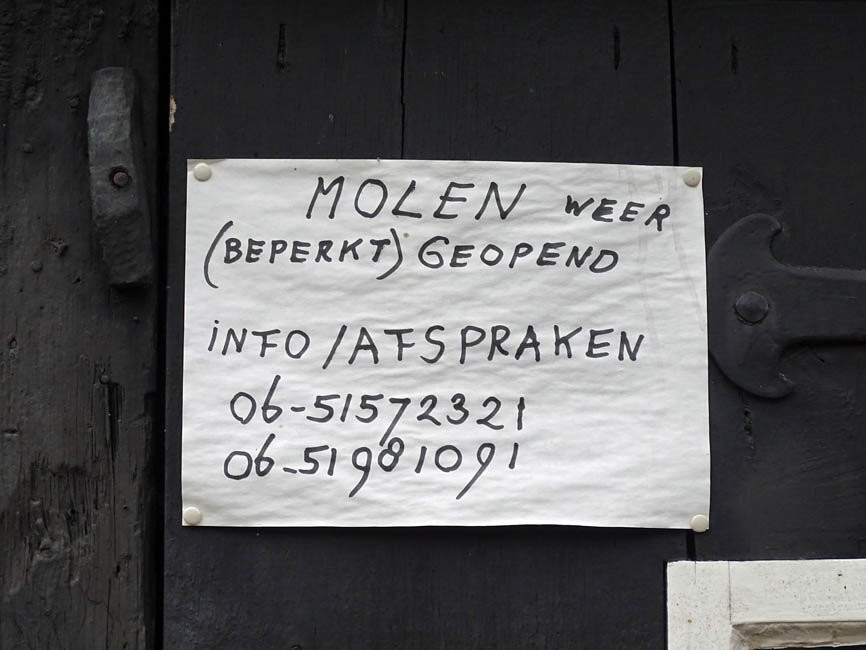 MOLEN WEER
(BEPERKT) GEOPEND
INFO/AFSPRAKEN
06-51572321
06-51981091